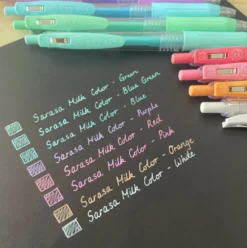 Sarasa Milk Color - Green
Sarasa Milk Color - Blue Green
Sarasa Milk Color - Blue
Sarasa Milk Color - Purple
Sarasa Milk Color - Red
Sarasa Milk Color - Pink
Sarasa Milk Color - Orange
Sarasa Milk Color - White